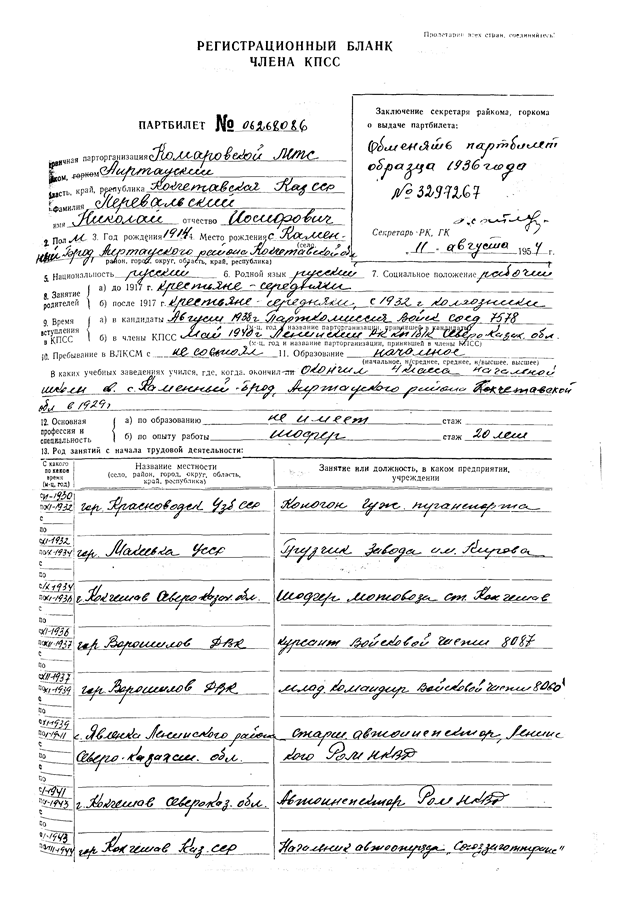 Пролетарии всех стран, соединяйтесь!
РЕГИСТРАЦИОННЫЙ БЛАНК
ЧЛЕНА КПСС
ПАРТБИЛЕТ № 06268086
Заключение секретаря райкома, горкома
о выдаче партбилета:
Обменять партбилет
образца 1936 года
№ 3297267
Секретарь РК, ГК
11 августа 1954 г.
парторганизация Комаровской МТС
горком Аиртауский
область, край, республика Кокчетавская Каз ССР
Фамилия Перевальский
имя Николай отчество Иосифович
2. Пол м 3. Год рождения 1914 4. Место рождения с Камен-
ный Брод, Аиртауского района Кокчетавской обл
(село, район, город, округ, область, край, республика)
5. Национальность русский 6. Родной язык русский 7. Социальное положение рабочий
8. Занятие родителей а) до 1917 г. крестьяне-середняки
б) после 1917 г. крестьяне-середняки, с 1932 г колхозники
9. Время вступления в КПСС а) в кандидаты Август 1938 г Парткомиссия Войск соед 7578
(м-ц, год и название парторганизации, принявшей в кандидаты)
б) в члены КПСС Май 1940 г Ленинский РК КП/б/К Северо Казах. обл.
(м-ц, год и название парторганизации, принявшей в члены КПСС)
10. Пребывание в ВЛКСМ с не состоял 11. Образование начальное
(начальное, н/среднее, среднее, н/высшее, высшее)
В каких учебных заведениях учился, где, когда окончил-ли окончил 4 класса начальной
школы в с. Каменный-Брод, Аиртауского района Кокчетавской
обл в 1929 г
12. Основная профессия и специальность а) по образованию не имеет стаж
б) по опыту работы шофер стаж 20 лет
13. Род занятий с начала трудовой деятельности:
С какого по какое время (м-ц, год)
Название местности
(село, район, город, округ, область, край, республика)
Занятие или должность, в каком предприятии, учреждении
1930 1932 гор. Красноводск Узб ССР Коногон Гуж.
1932 1934 гор. Макеевка УССР Грузчик завода им. Кирова
1934 1936 г. Кокчетав Северо Казах обл. Шофер мотовоза ст. Кокчетав
1936 1937 гор Ворошилов ДВК курсант Войсковой части 8087
1937 1939 гор Ворошилов ДВК млад. командир Войсковой части 8060
1939 с. Явленка Ленинского района старш. автоинспектор, Ленинс
Северо-Казахск. обл. кого РОМ НКВД
1941 1943 г. Кокчетав Североказ. обл. Автоинспектор РОМ НКВД
1943 1944 гор Кокчетав Каз. ССР Начальник "Союззаготтранс"